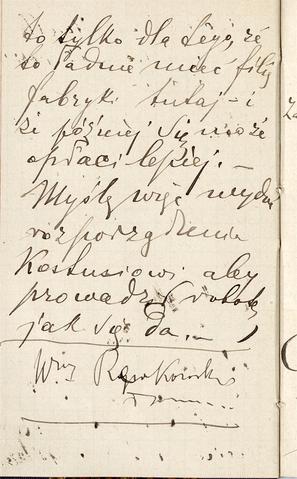 to tylko dla tego, że
to ładnie mieć filię
fabryki tutaj – i
że później się może
opłaci lepiej. –
Myślę więc wydać
rozporządzenia
Kostusiowi aby
prowadził robotę
jak się da. –